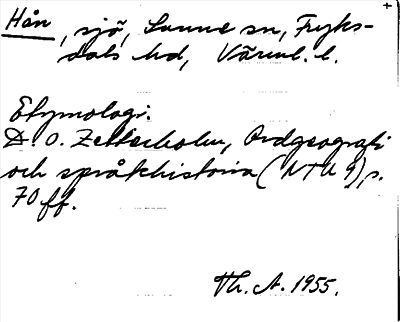 Hån, sjö, Sunne sn, Fryks-
dals hd, Värml. l.
Etymologi:
D. O. Zetterholm, Ordgeografi
och språkhistoria (NTU 9), s.
70 ff.
Th. A. 1955.